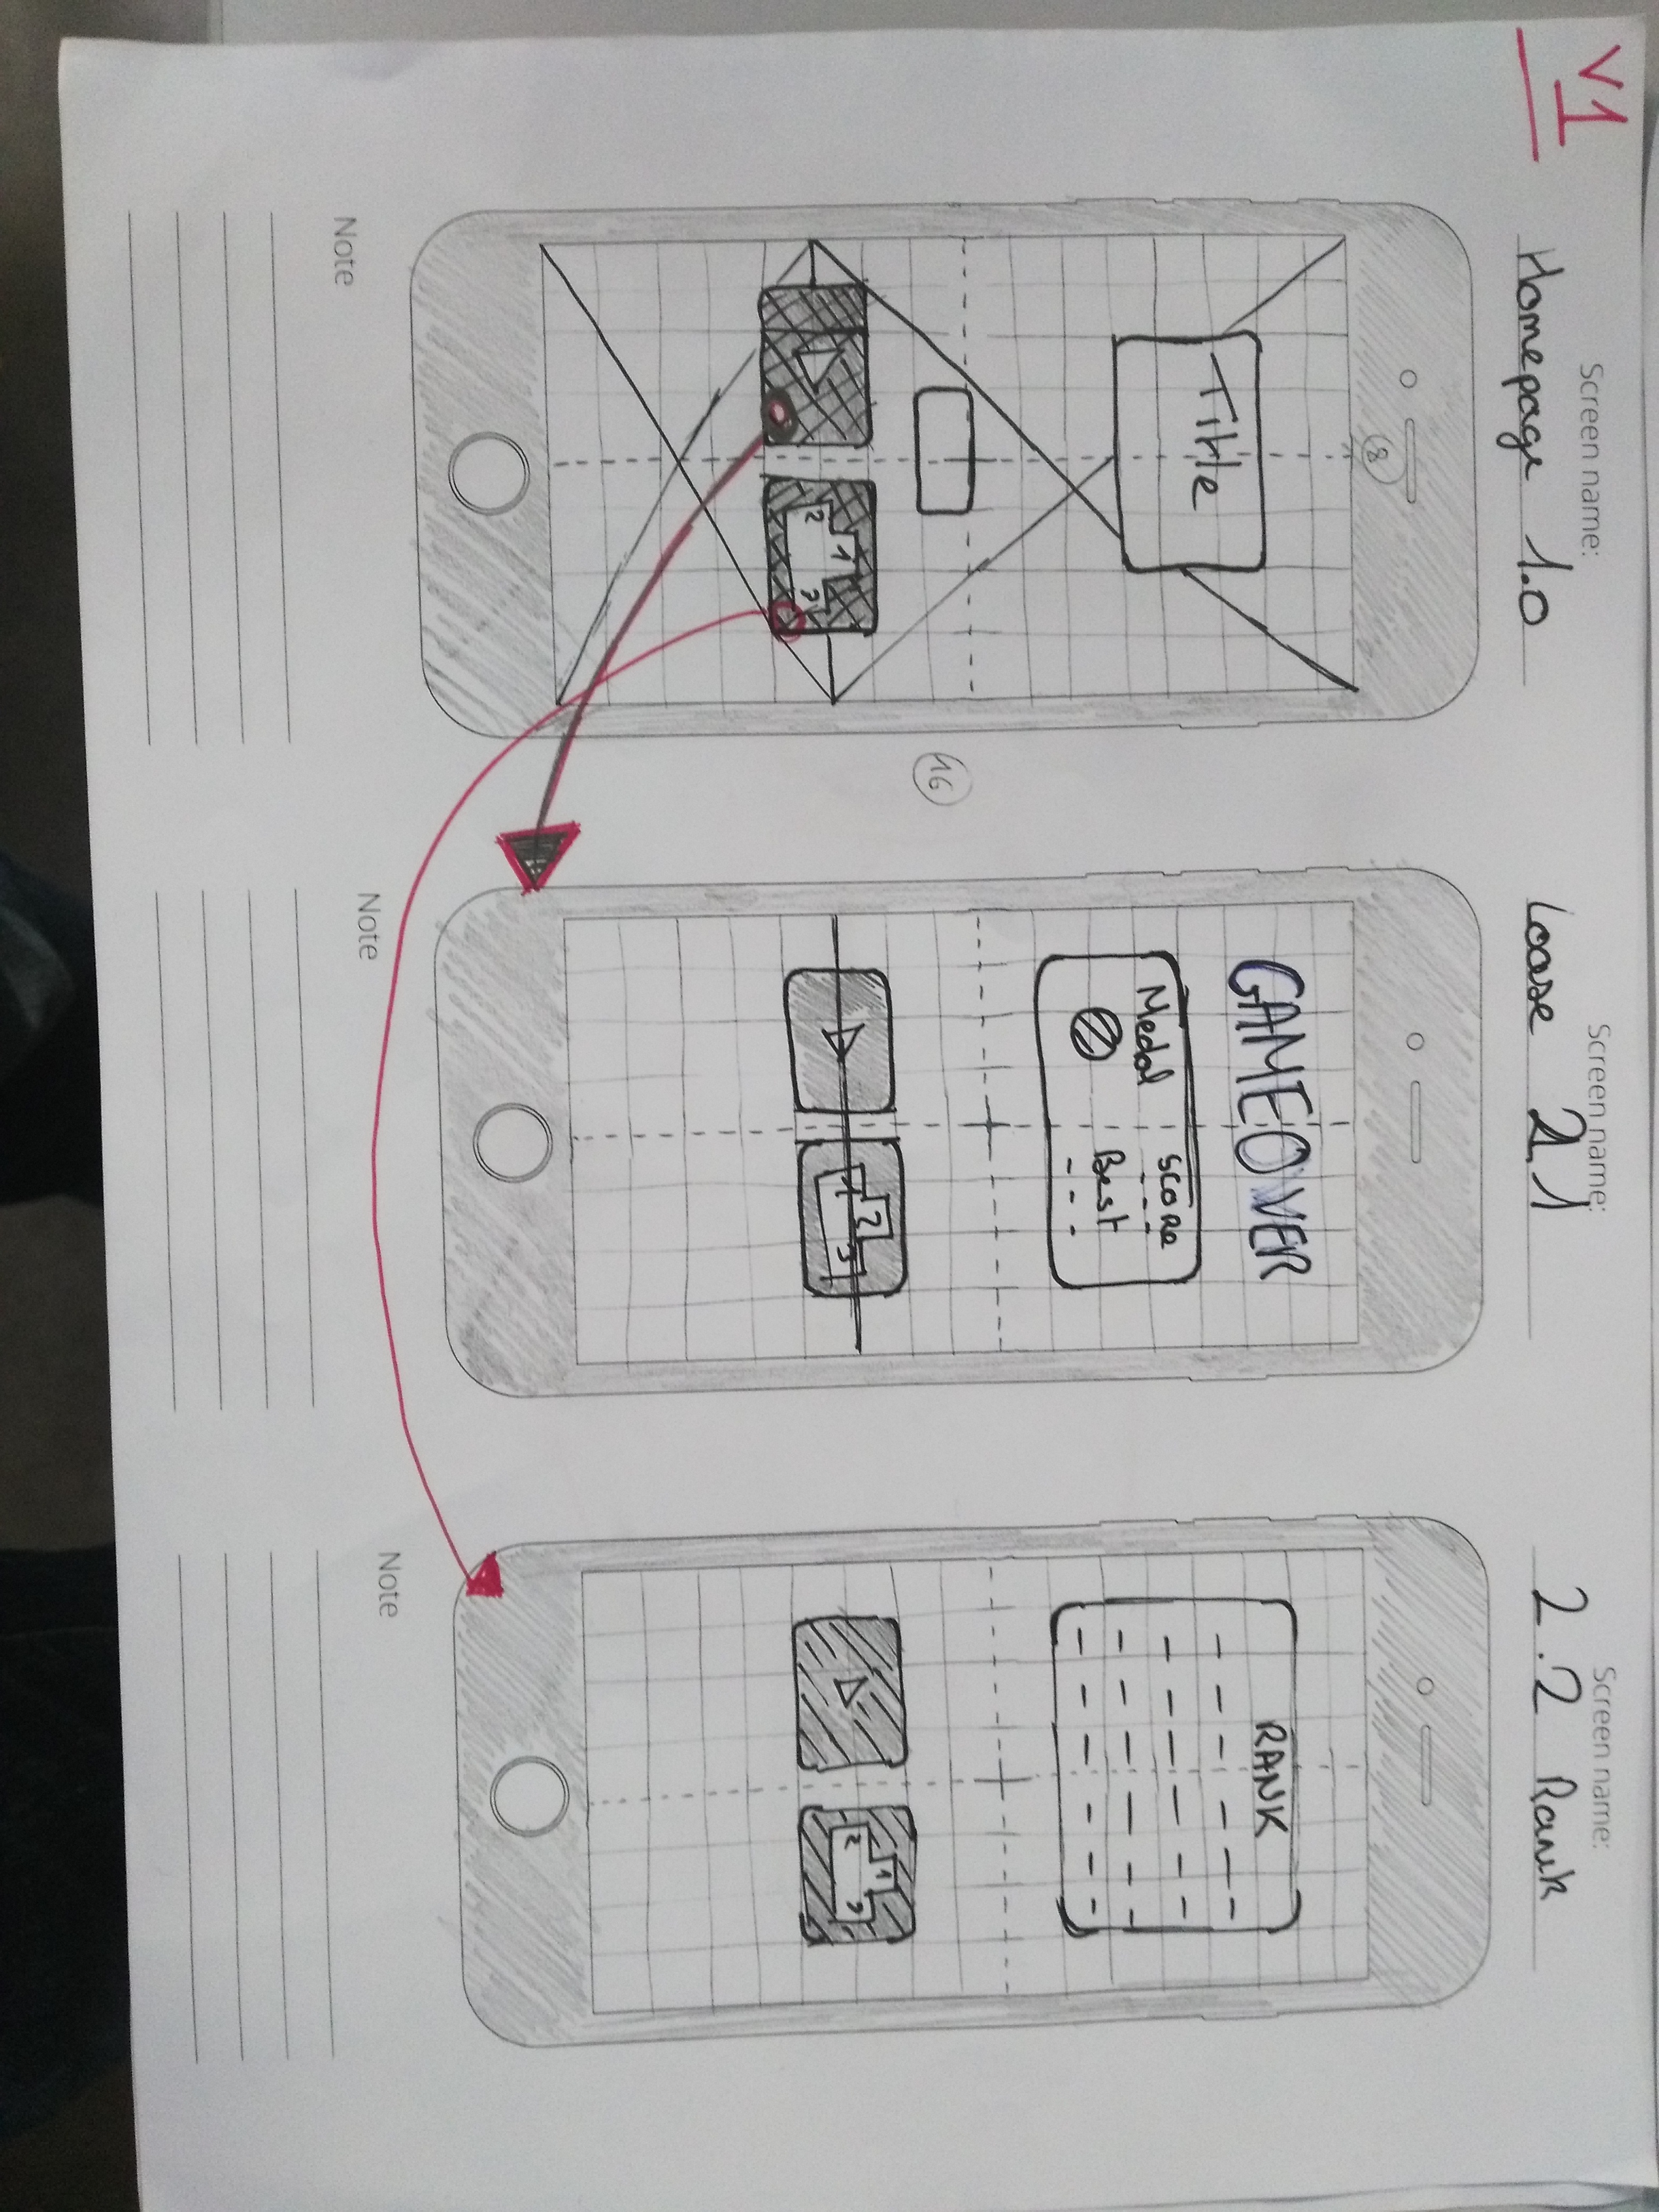 V1
Screen name:
Homepage 1.0
8
Title
2 1 3
16
Note
Screen name:
Loose 2.1
GAMEOVER
Medal
Score
Best
1 2 3
Note
Screen name:
2.2 Rank
RANK
2 1 3
Note